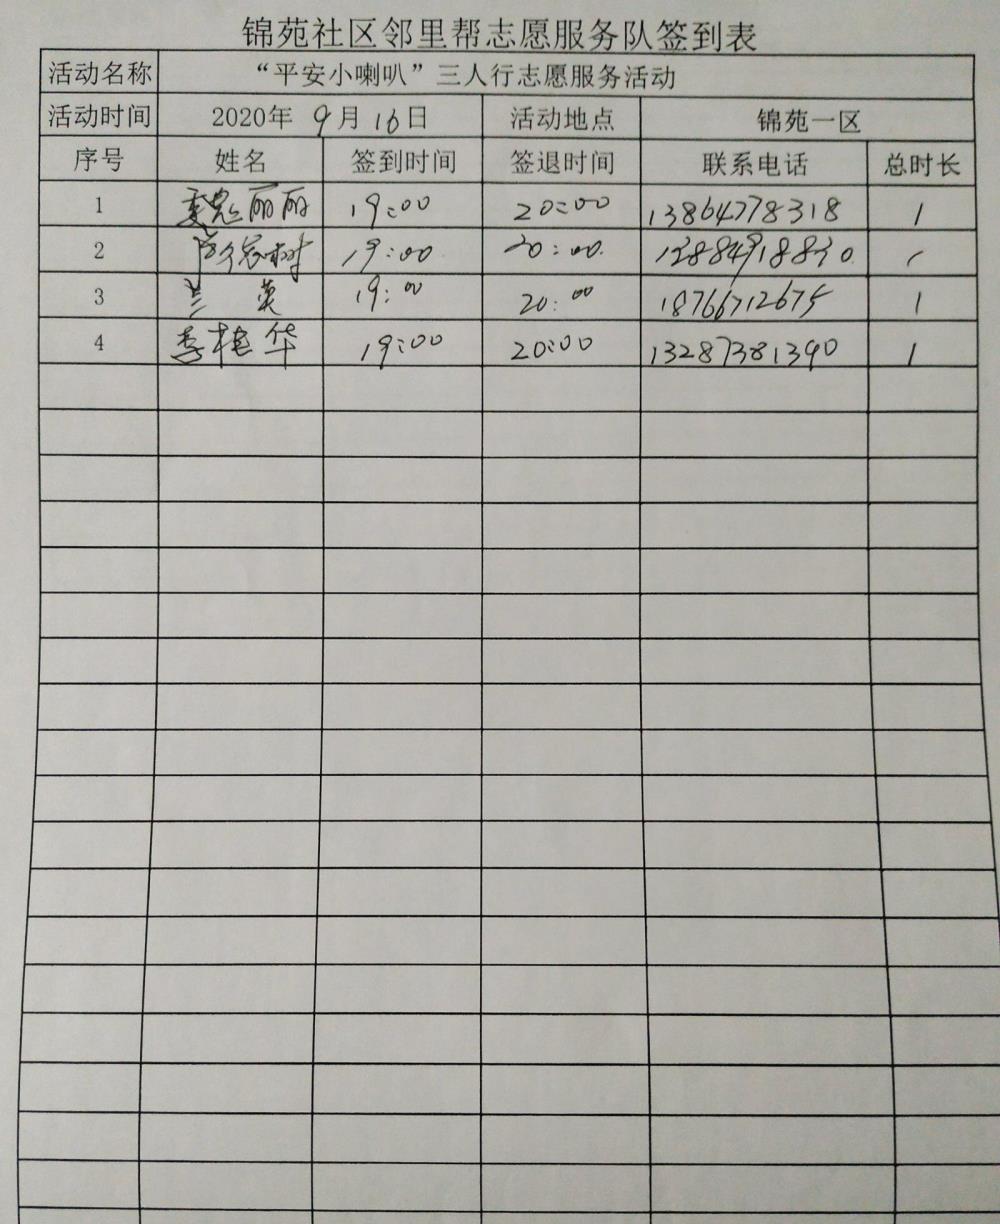 锦苑社区邻里帮志愿服务队签到表
活动名称 “平安小喇叭”三人行志愿服务活动
活动时间 2020年 9月16日 活动地点 锦苑一区
序号 姓名 签到时间 签退时间 联系电话 总时长
1 丽丽 19:00 20:00 13864778318 1
2 树 19:00 20:00 1
3 兰英 19:00 20:00 18766712675 1
4 李桂华 19:00 20:00 13287381390 1